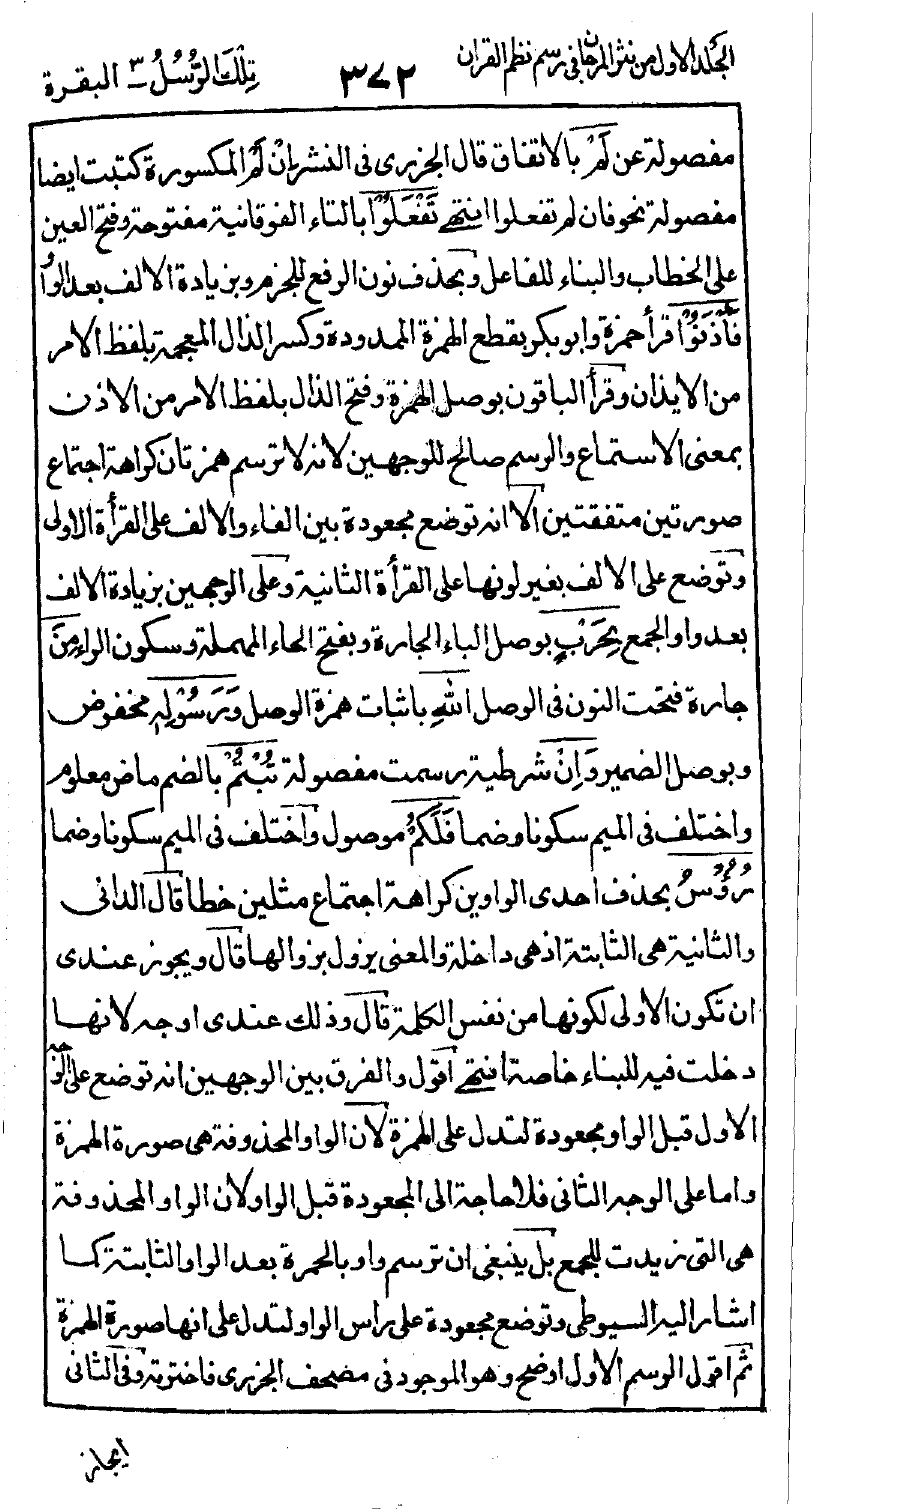 الجلد الاول من نثر المرجان فى رسم نظم القران
٣٧٢
تِلْكَ الرُّسُلُ ٣ البقرة
مفصولة عن لَمْ بالاتفاق قال الجزرى فى النشر اِنْ لَمْ المكسورة كتبت ايضا
مفصولة نحو فان لم تفعلوا انتهى تَفْعَلُوْا بالتاء الفوقانية مفتوحة وفتح العين
على الخطاب والبناء للفاعل وبحذف نون الرفع للجزم وبزيادة الالف بعد الواو
فَأْذَنُوْا قرأ حمزة وابو بكر بقطع الهمزة الممدودة وكسر الذال المعجمة بلفظ الامر
من الايذان وقرأ الباقون بوصل الهمزة وفتح الذال بلفظ الامر من الاذن
بمعنى الاستماع والرسم صالح للوجهين لانه لا ترسم همزتان كراهة اجتماع
صورتين متفقتين الا انه توضع مجعودة بين الفاء والالف على القرأة الاولى
وتوضع على الالف بغير لونها على القرأة الثانية وعلى الوجهين بزيادة الالف
بعد واو الجمع بِحَرْبٍ بوصل الباء الجارة وبفتح الحاء المهملة وسكون الراء مِنَ
جارة فتحت النون فى الوصل اللهِ باثبات همزة الوصل وَرَسُوْلِهٖ مخفوض
وبوصل الضمير وَاِنْ شرطية رسمت مفصولة تُبْتُمْ بالضم ماض معلوم
واختلف فى الميم سكونا وضما فَلَكُمْ موصول واختلف فى الميم سكونا وضما
رُءُوْسُ بحذف احدى الواوين كراهة اجتماع مثلين خطا قال الدانى
والثانية هى الثابتة اذ هى داخلة والمعنى يزول بزوالها قال ويجوز عندى
ان تكون الاولى لكونها من نفس الكلمة قال وذلك عندى اوجه لانها
دخلت فيه للبناء خاصة انتهى اقول والفرق بين الوجهين انه توضع على الوجه
الاول قبل الواو مجعودة لتدل على الهمزة لان الواو المحذوفة هى صورة الهمزة
واما على الوجه الثانى فلا حاجة الى المجعودة قبل الواو لان الواو المحذوفة
هى التى زيدت للجمع بل ينبغى ان ترسم واو بالحمرة بعد الواو الثابتة كما
اشار اليه السيوطى وتوضع مجعودة على راس الواو لتدل على انها صورة الهمزة
ثم اقول الرسم الاول اوضح وهو الموجود فى مصحف الجزرى فاخترته وفى الثانى
ايجاز